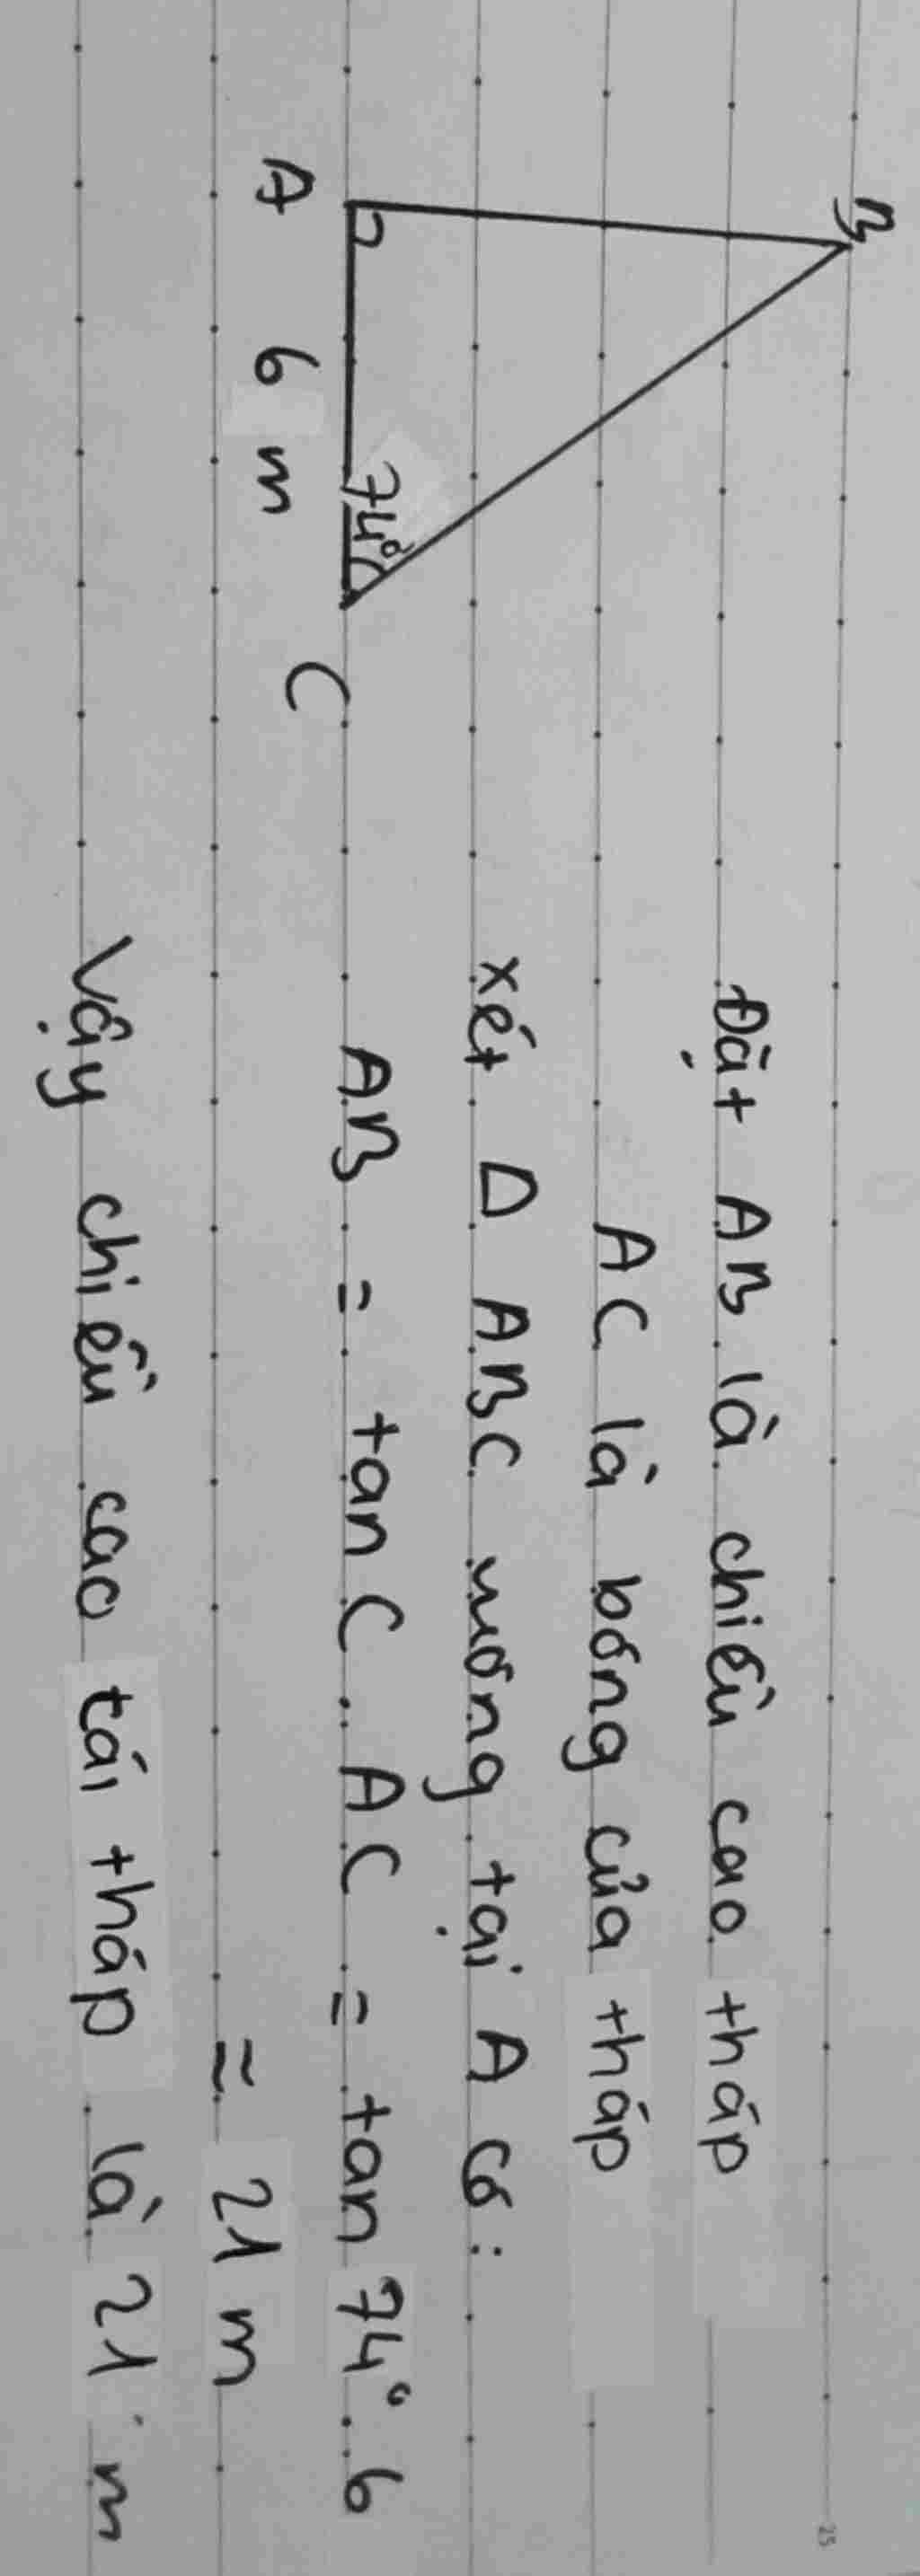 B
74°
A 6 m C
Đặt AB là chiều cao tháp
AC là bóng của tháp
xét Δ ABC vuông tại A có:
AB = tan C . AC = tan 74° . 6
≈ 21 m
Vậy chiều cao tái tháp là 21 m
25